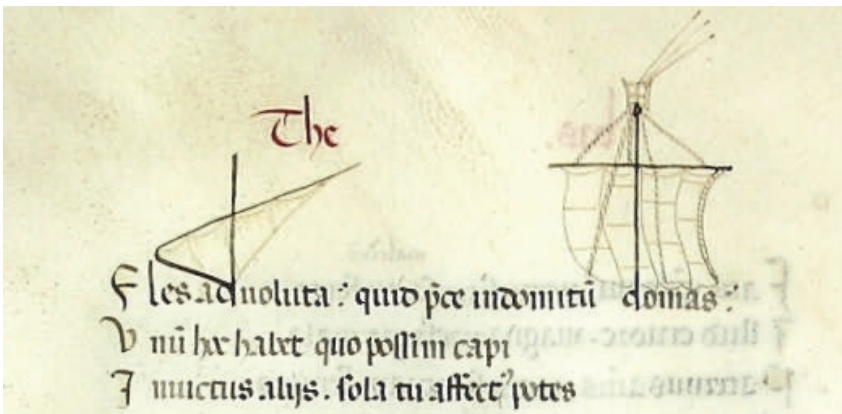 The
Fles aduoluta : quid p̄ce indomitū domas :
Vnū hoc habet quo possim capi
Inuictus alijs . sola tu affectꝰ potes